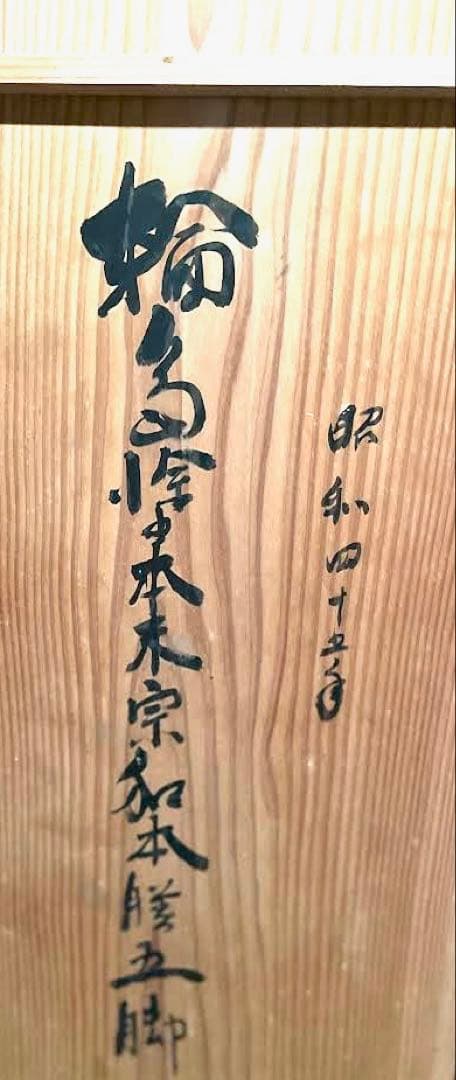 昭和四十五年
輪島塗日本木宗和本膳五脚